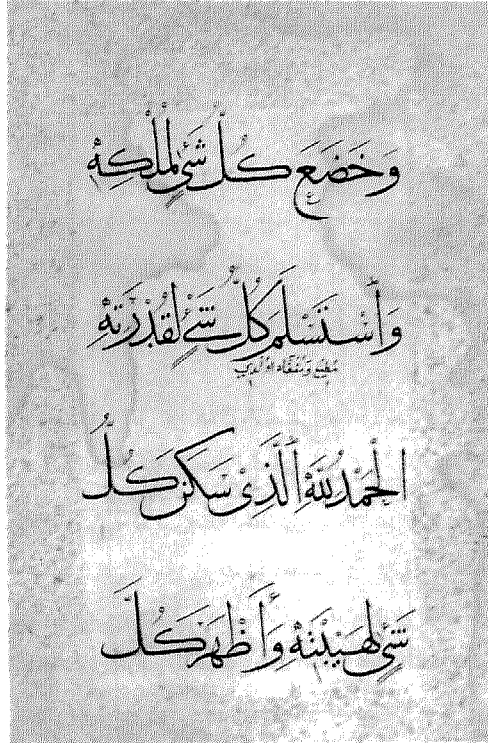 وَخَضَعَ كُلُّ شَيْءٍ لِمُلْكِهِ
وَٱسْتَسْلَمَ كُلُّ شَيْءٍ لِقُدْرَتِهِ
الْحَمْدُ لِلَّهِ ٱلَّذِي سَكَنَ كُلُّ
شَيْءٍ لِهَيْبَتِهِ وَأَظْهَرَ كُلَّ